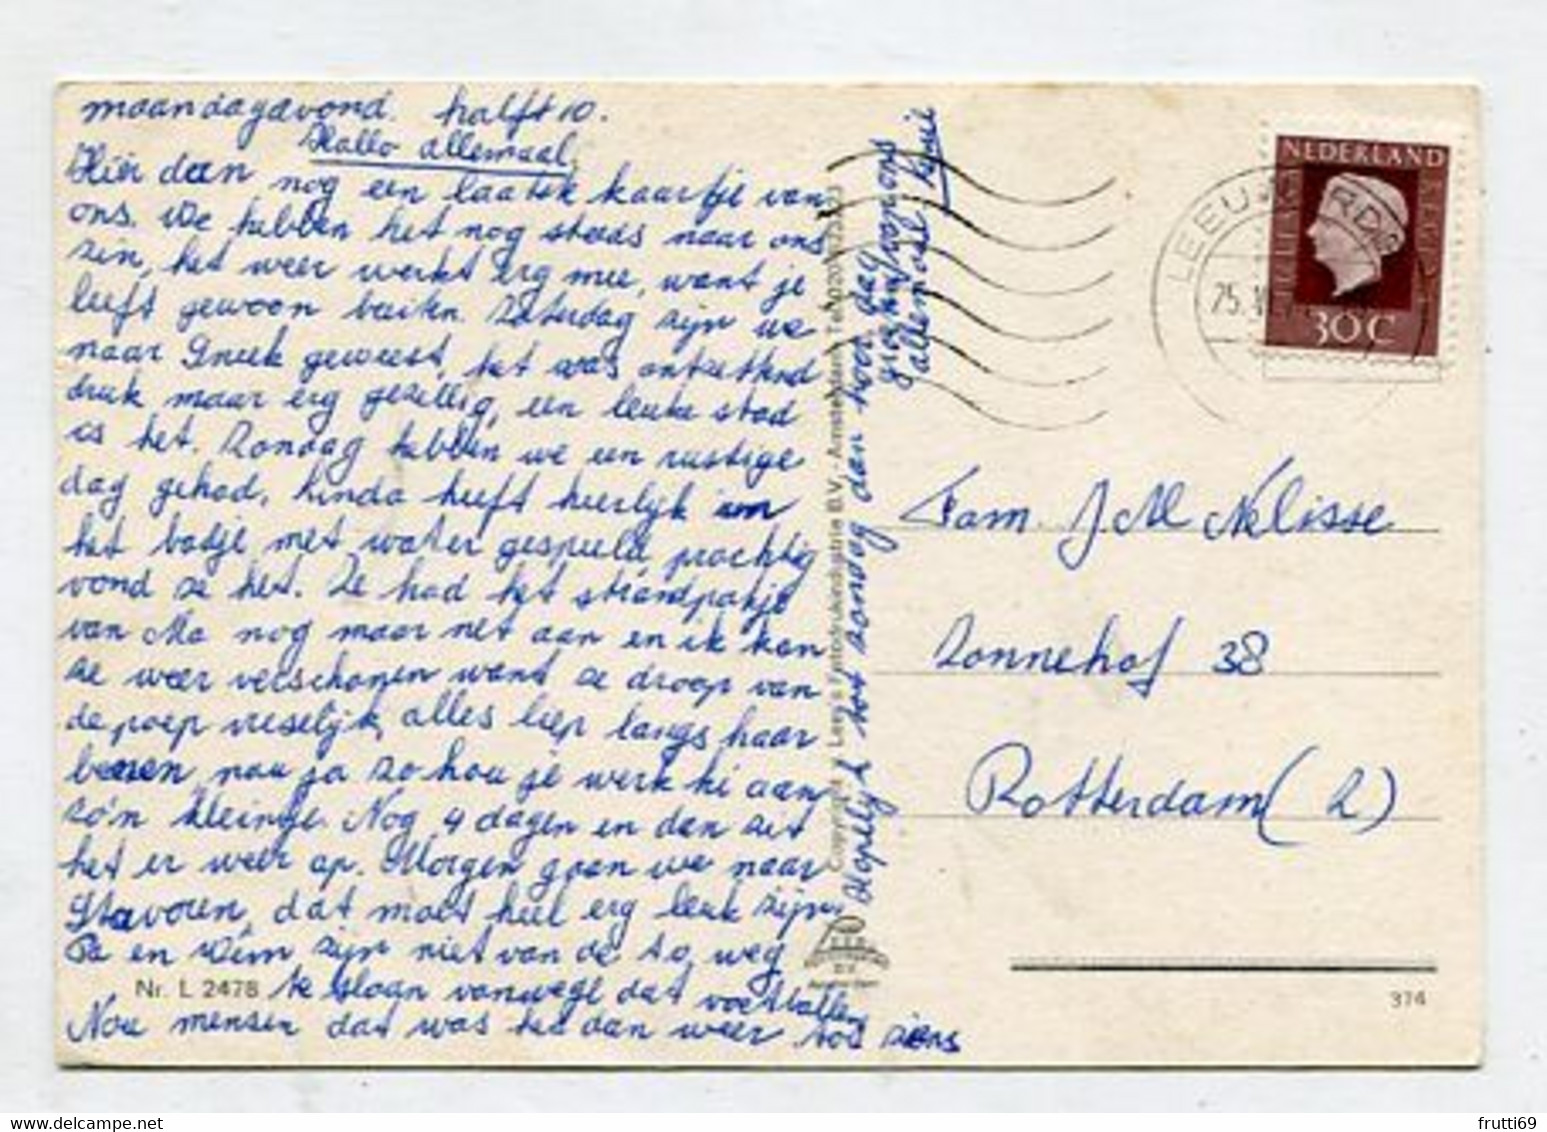 maandagavond. half 10.
Hallo allemaal,
Hier dan nog een laatste kaartje van
ons. We hebben het nog steeds naar ons
zin, het weer werkt erg mee, want je
leeft gewoon buiten. Zaterdag zijn we
naar Sneek geweest, het was ontzettend
druk maar erg gezellig, een leuke stad
is het. Zondag hebben we een rustige
dag gehad, Linda heeft heerlijk in
het badje met water gespeeld, prachtig
vond ze het. Ze had het strandpakje
van Ma nog maar net aan en ik kon
ze weer verschonen want ze droop van
de poep vreselijk, alles liep langs haar
benen, nou ja zo hou je werk hè aan
zo'n kleintje. Nog 4 dagen en dan zit
het er weer op. Morgen gaan we naar
Stavoren, dat moet heel erg leuk zijn.
Pa en Wim zijn niet van de t.v. weg
te slaan vanwege dat voetballen
Nou mensen dat was het dan weer tot ziens
Hopelijk tot zondag dan hoor dag
groetjes van ons
allemaal
Nr. L 2478
Copyright Levy's Fotodrukindustrie B.V. - Amsterdam
NEDERLAND
30 C
LEEUWARDEN
25.
Fam. J M Nelisse
Zonnehof 38
Rotterdam (2)
374
frutti69
delcampe.net